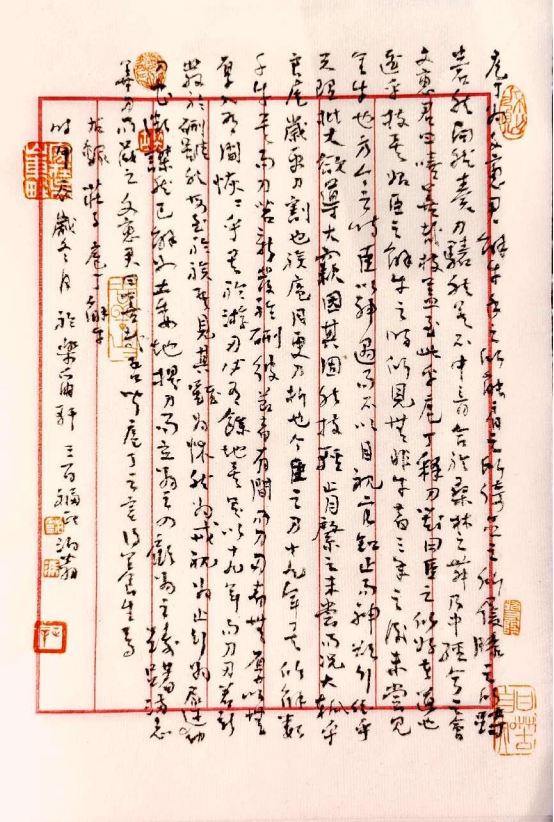 庖丁為文惠君解牛手之所觸肩之所倚足之所履膝之所踦
砉然嚮然奏刀騞然莫不中音合於桑林之舞乃中經首之會
文惠君曰嘻善哉技蓋至此乎庖丁釋刀對曰臣之所好者道也
進乎技矣始臣之解牛之時所見無非牛者三年之後未嘗見
全牛也方今之時臣以神遇而不以目視官知止而神欲行依乎
天理批大郤導大窾因其固然技經肯綮之未嘗而況大軱乎
良庖歲更刀割也族庖月更刀折也今臣之刀十九年矣所解數
千牛矣而刀刃若新發於硎彼節者有間而刀刃者無厚以無
厚入有間恢恢乎其於游刃必有餘地矣是以十九年而刀刃若新
發於硎雖然每至於族吾見其難為怵然為戒視為止行為遲動
刀甚微謋然已解如土委地提刀而立為之四顧為之躊躇滿志
善刀而藏之文惠君曰善哉吾聞庖丁之言得養生焉
右錄莊子庖丁解牛
時甲辰歲冬月於樂軒三百翁